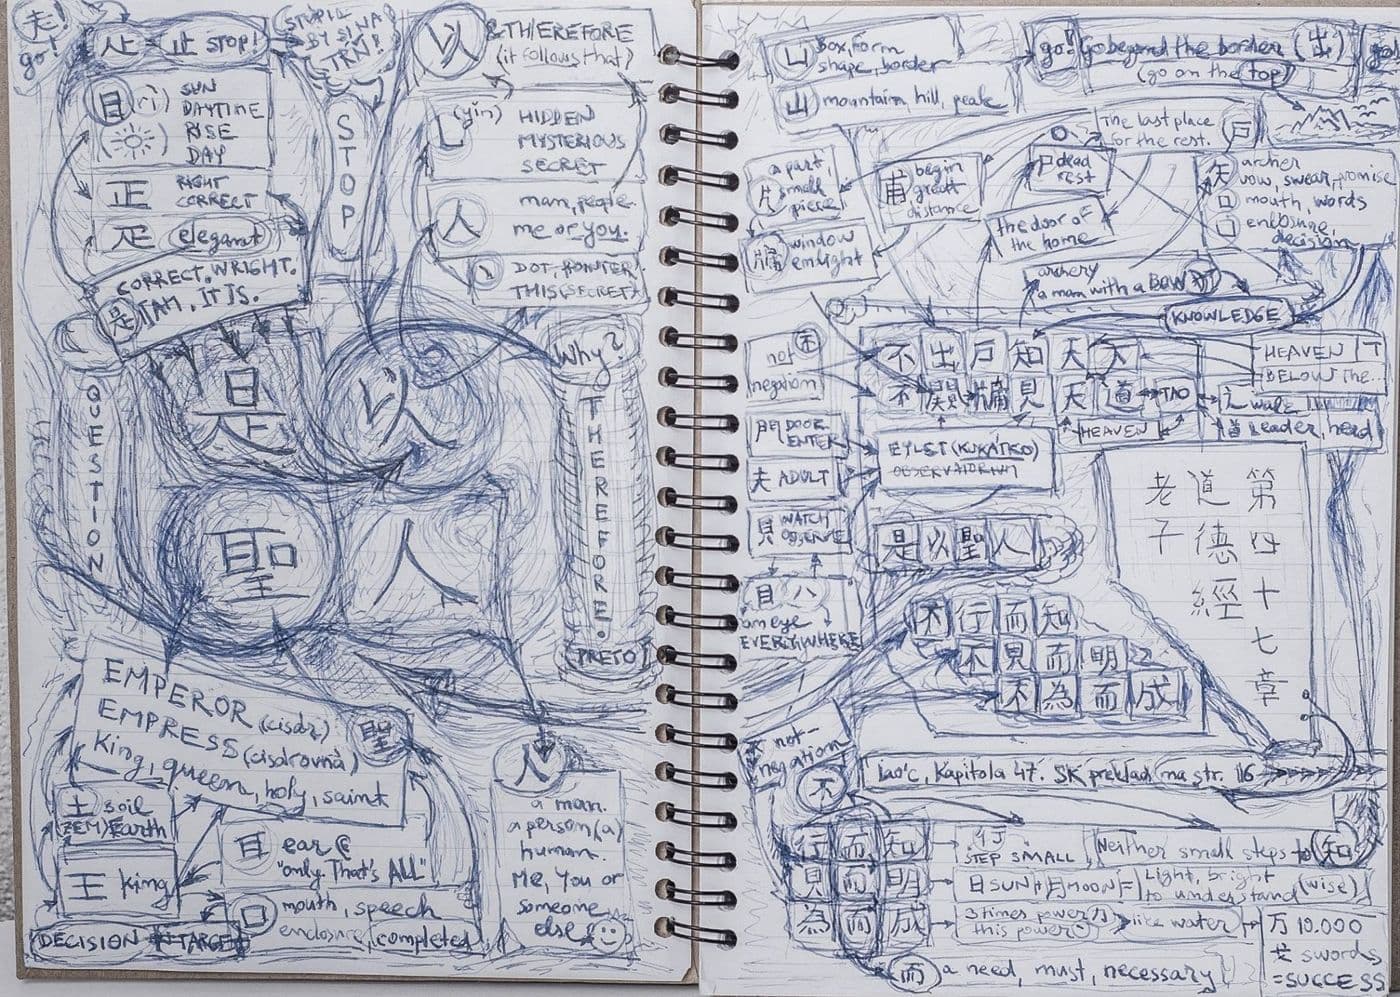 go!
止 STOP!
STUPID
BY SLNA
日 (rì) SUN
DAYTIME
RISE
DAY
正 RIGHT
CORRECT
疋 elegant
CORRECT. WRIGHT.
是 I AM, IT IS.
STOP
以 & THEREFORE
(it follows that)
(yǐn) HIDDEN
MYSTERIOUS
SECRET
人 man, people
me or you.
DOT, POINTER
THIS (SECRET)
QUESTION
是 以
聖 人
Why?
THEREFORE.
(PRETO)
EMPEROR (cisár)
EMPRESS (cisárovná)
King, queen, holy, saint
聖
土 soil
(ZEM) Earth
王 king
耳 ear @
"only. That's ALL"
口 mouth, speech
enclosure, completed
DECISION
TARGET
人
a man.
a person (a)
human.
Me, you or
someone
else
凵 Box, form
shape, border
山 mountain, hill, peak
go! Go beyond the border (出)
(go on the top)
The last place
for the rest.
戶
尸 dead
rest
the door of
the home
矢 archer
vow, swear, promise
口 mouth, words
enclosure,
decision
片 a part,
small
piece
甫 begin
great
distance
牖 window
enlight
archery
a man with a BOW
KNOWLEDGE
not 不
negation
不 出 戶 知 天 下
不 闚 牖 見 天 道 TAO
HEAVEN
HEAVEN
BELOW the...
walk
leader, head
門 DOOR
ENTER
夫 ADULT
見 WATCH
OBSERVE
EYLET (KUKÁTKO)
OBSERVATORIUM
目 八
an eye
EVERYWHERE
是 以 聖 人
不 行 而 知
不 見 而 明
不 為 而 成
第四十七章
道德經
老子
Lao'c, Kapitola 47. SK preklad na str. 116
不 not-
negation
不
行 而 知
見 而 明
為 而 成
行
STEP SMALL
Neither small steps to (知)
日 SUN + 月 MOON =
Light, bright
to understand (wise)
3 times power 力
this power
like water
万 10.000
swords
=SUCCESS
而 a need, must, necessary